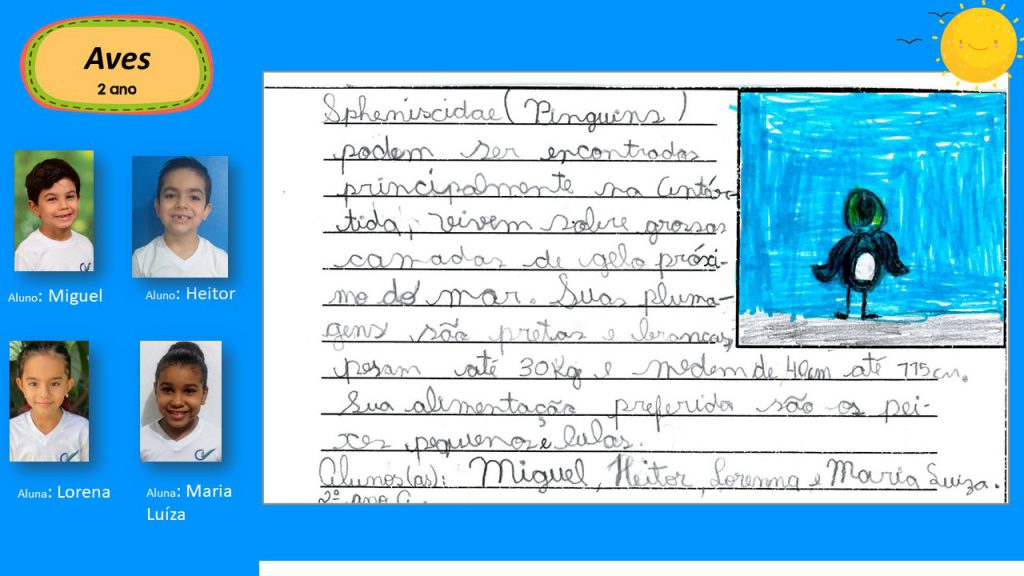 Aves
2 ano
Aluno: Miguel
Aluno: Heitor
Aluna: Lorena
Aluna: Maria
Luíza
Spheniscidae (Pinguins)
podem ser encontrados
principalmente na Antár-
tida, vivem sobre grossas
camadas de gelo próxi-
mo do mar. Suas pluma-
gens são pretas e brancas,
pesam até 30Kg e medem de 40cm até 115cm.
Sua alimentação preferida são os pei-
xes pequenos e lulas.
Alunos(as): Miguel, Heitor, Lorenna e Maria Luiza.
2º ano